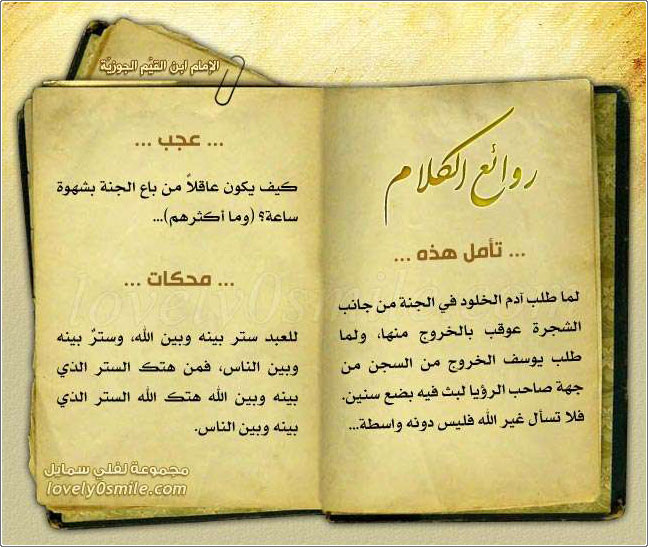 الإمام ابن القيّم الجوزيّة
روائع الكلام
... تأمل هذه ...
لما طلب آدم الخلود في الجنة من جانب
الشجرة عوقب بالخروج منها، ولما
طلب يوسف الخروج من السجن من
جهة صاحب الرؤيا لبث فيه بضع سنين.
فلا تسأل غير الله فليس دونه واسطة...
... عجب ...
كيف يكون عاقلاً من باع الجنة بشهوة
ساعة؟ (وما أكثرهم)...
... محكات ...
للعبد ستر بينه وبين الله، وسترٌ بينه
وبين الناس، فمن هتك الستر الذي
بينه وبين الله هتك الله الستر الذي
بينه وبين الناس.
مجموعة لفلي سمايل
lovely0smile.com
lovely0smile.com